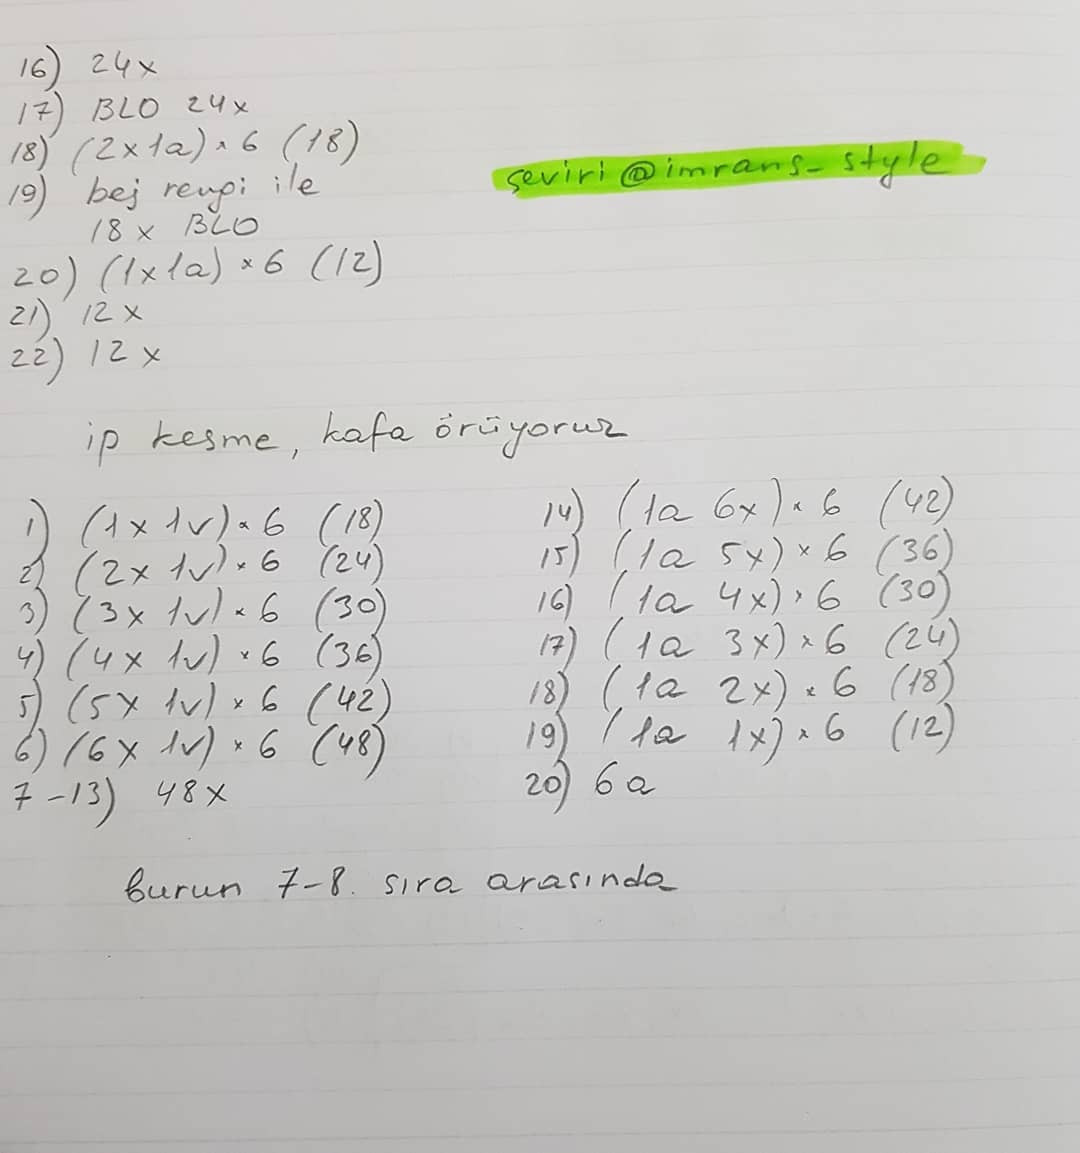 16) 24x
17) BLO 24x
18) (2x1a)×6 (18)
çeviri@imrans_style
19) bej rengi ile
18x BLO
20) (1x1a)×6 (12)
21) 12x
22) 12x
ip kesme, kafa örüyoruz
1) (1x 1v)×6 (18)
2) (2x 1v)×6 (24)
3) (3x 1v)×6 (30)
4) (4x 1v)×6 (36)
5) (5x 1v)×6 (42)
6) (6x 1v)×6 (48)
7-13) 48x
14) (1a 6x)×6 (42)
15) (1a 5x)×6 (36)
16) (1a 4x)×6 (30)
17) (1a 3x)×6 (24)
18) (1a 2x)×6 (18)
19) (1a 1x)×6 (12)
20) 6a
burun 7-8. sıra arasında